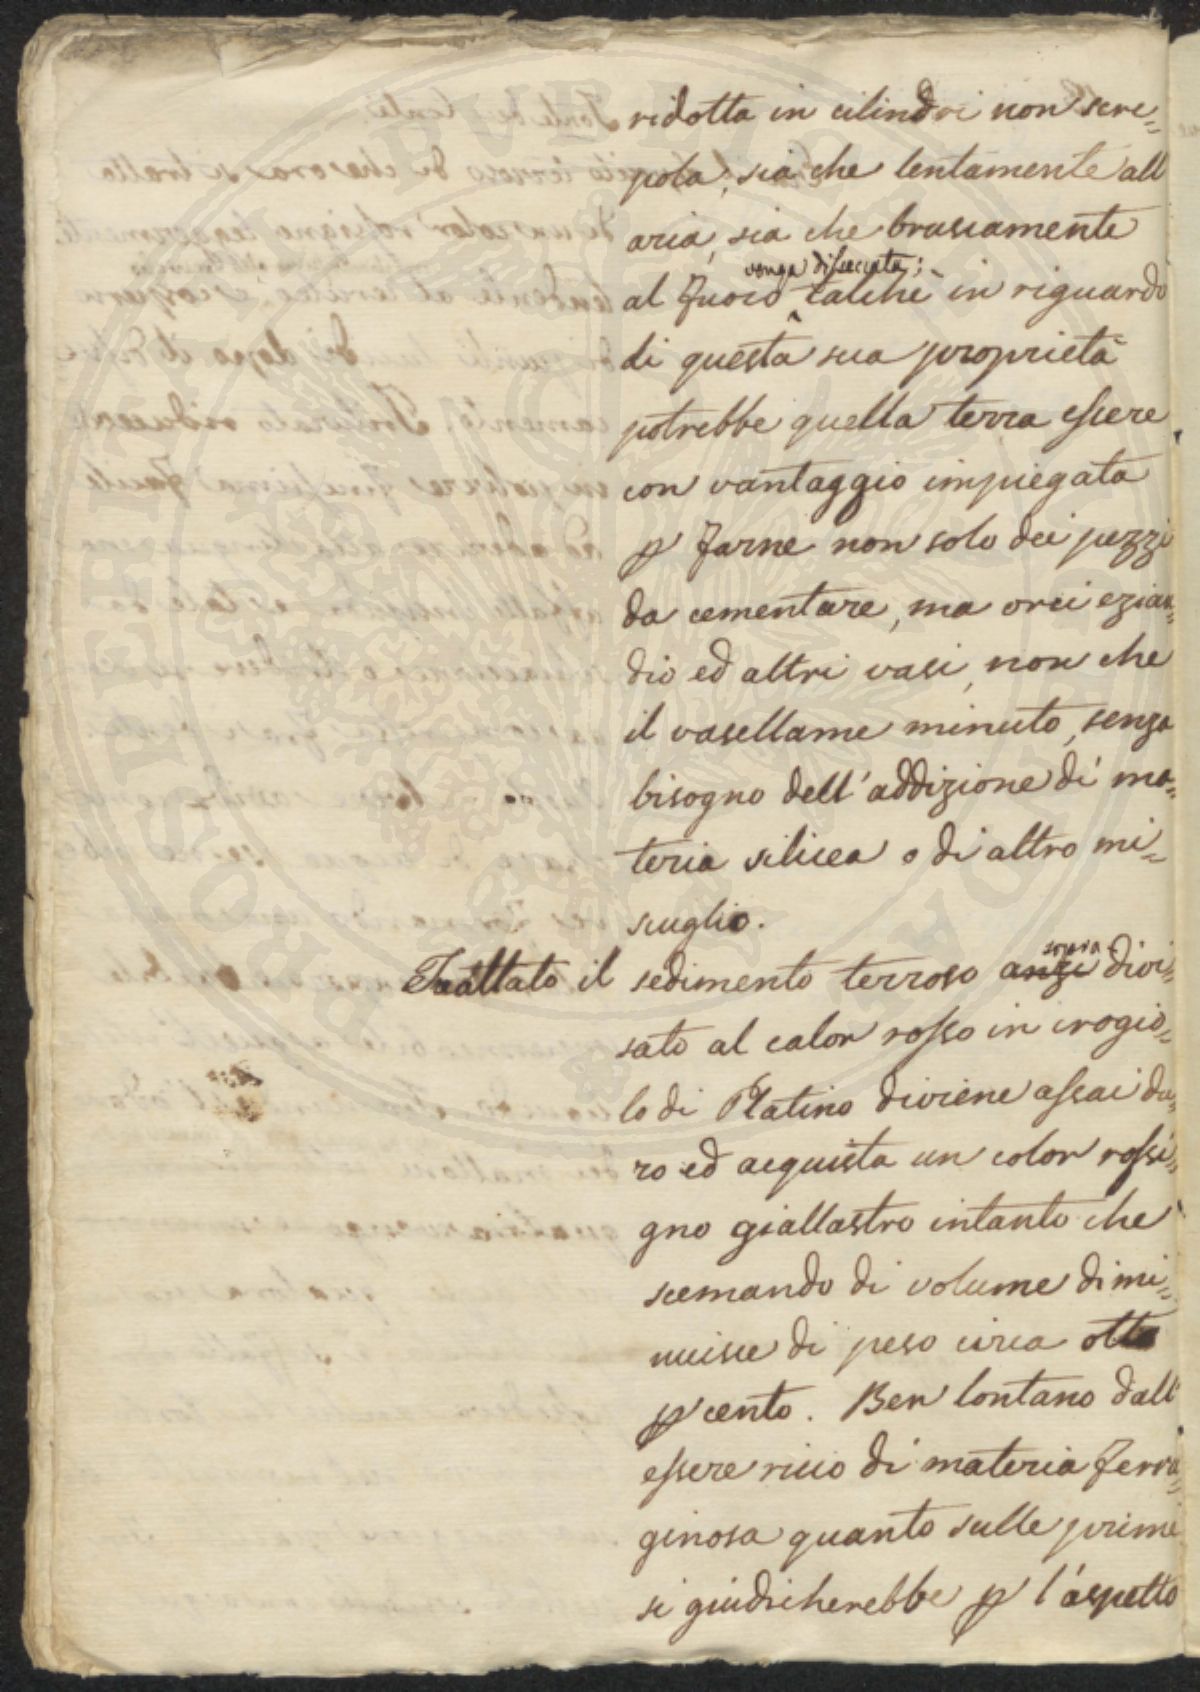 ridotta in cilindri non scre=
pola, sia che lentamente all
aria, sia che bruscamente
venga disseccata;
al fuoco talchè in riguardo
di questa sua proprietà
potrebbe quella terra essere
con vantaggio impiegata
p farne non solo dei pezzi
da cementare, ma orci ezian=
dio ed altri vasi, non che
il vasellame minuto, senza
bisogno dell'addizione di ma=
teria silicea o di altro mi=
scuglio.
sopra
Trattato il sedimento terroso anzi divi=
sato al calor rosso in crogio=
lo di Platino diviene assai du=
ro ed acquista un color rossi=
gno giallastro intanto che
scemando di volume dimi=
nuisce di peso circa otto
p cento. Ben lontano dall'
essere ricco di materia ferru=
ginosa quanto sulle prime
si giudicherebbe p l'aspetto